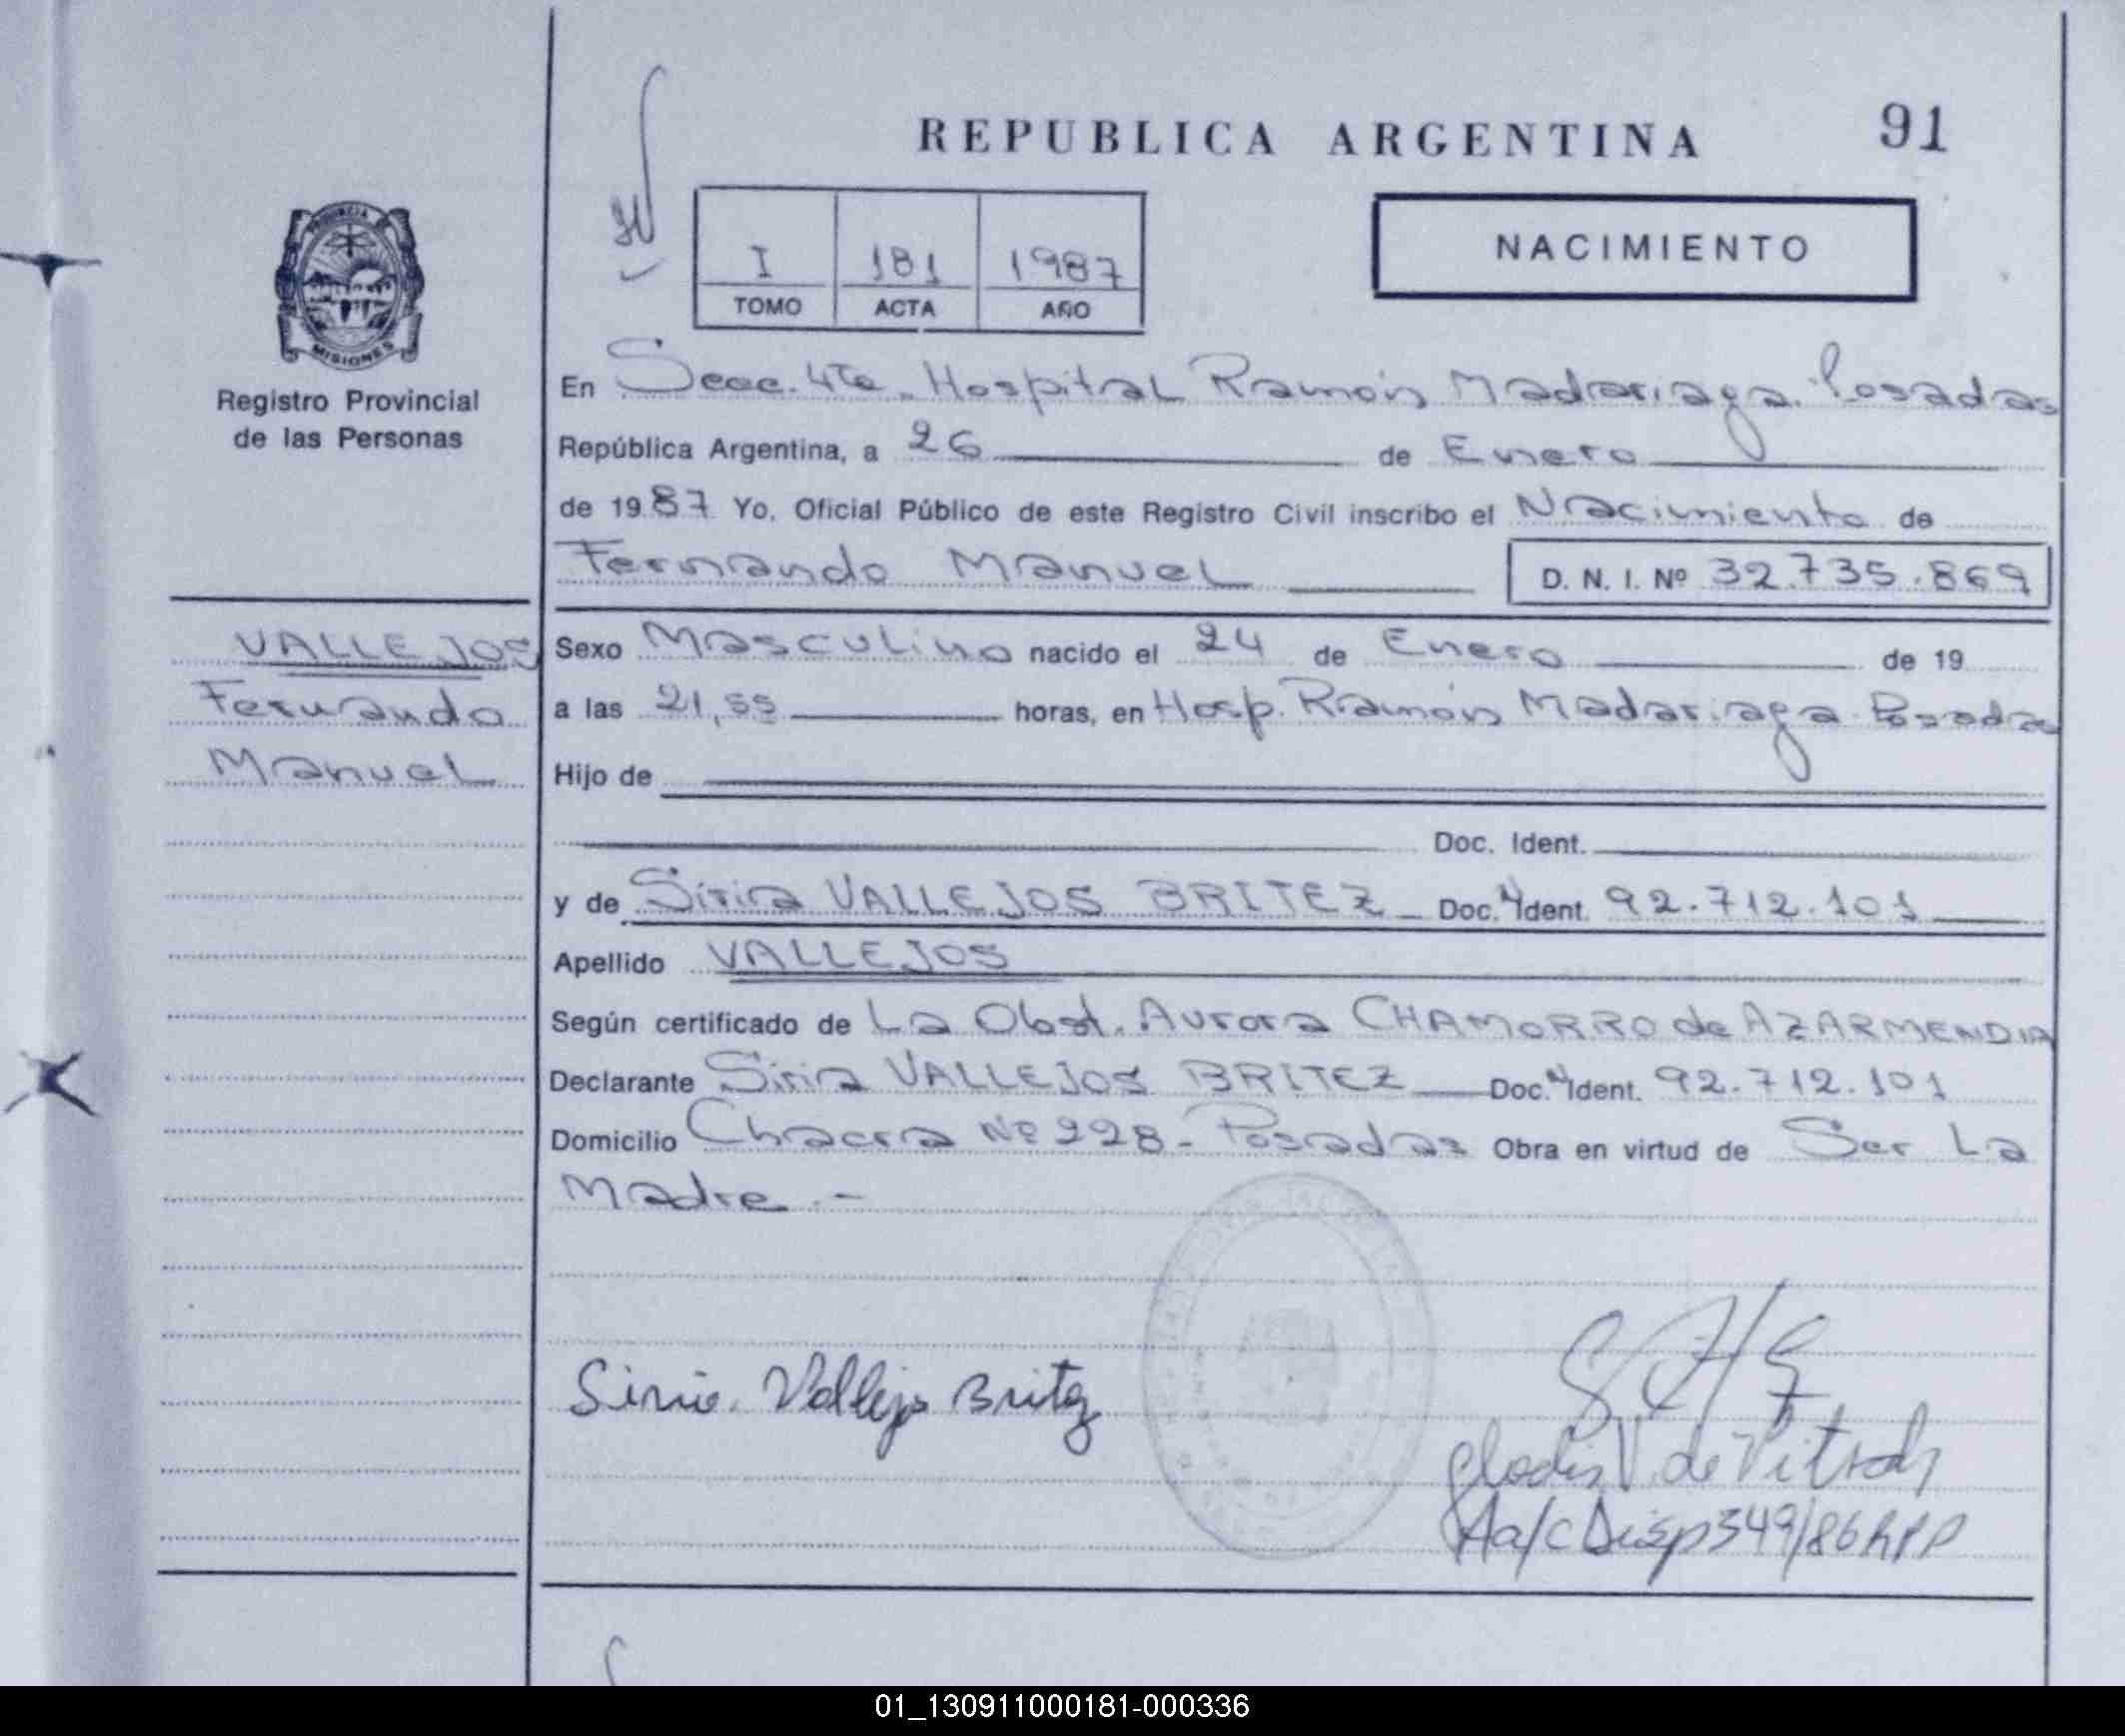 REPUBLICA ARGENTINA
91
PROVINCIA DE
MISIONES
Registro Provincial
de las Personas
I 181 1987
TOMO ACTA AÑO
NACIMIENTO
En Secc. 4ta. Hospital Ramón Madariaga. Posadas
República Argentina, a 26 de Enero
de 1987 Yo, Oficial Público de este Registro Civil inscribo el Nacimiento de
Fernando Manuel D. N. I. Nº 32.735.869
VALLEJOS
Fernando
Manuel
Sexo Masculino nacido el 24 de Enero de 19
a las 21,55 horas, en Hosp. Ramón Madariaga Posadas
Hijo de
Doc. Ident.
y de Siria VALLEJOS BRITEZ Doc. Ident. 92.712.101
Apellido VALLEJOS
Según certificado de La Obst. Aurora CHAMORRO de AZARMENDIA
Declarante Siria VALLEJOS BRITEZ Doc. Ident. 92.712.101
Domicilio Chacra Nº 228 - Posadas Obra en virtud de Ser La
Madre.-
Siria Vallejo Britez
V. de
Aa/c Disp 349/86 RPP
01_130911000181-000336